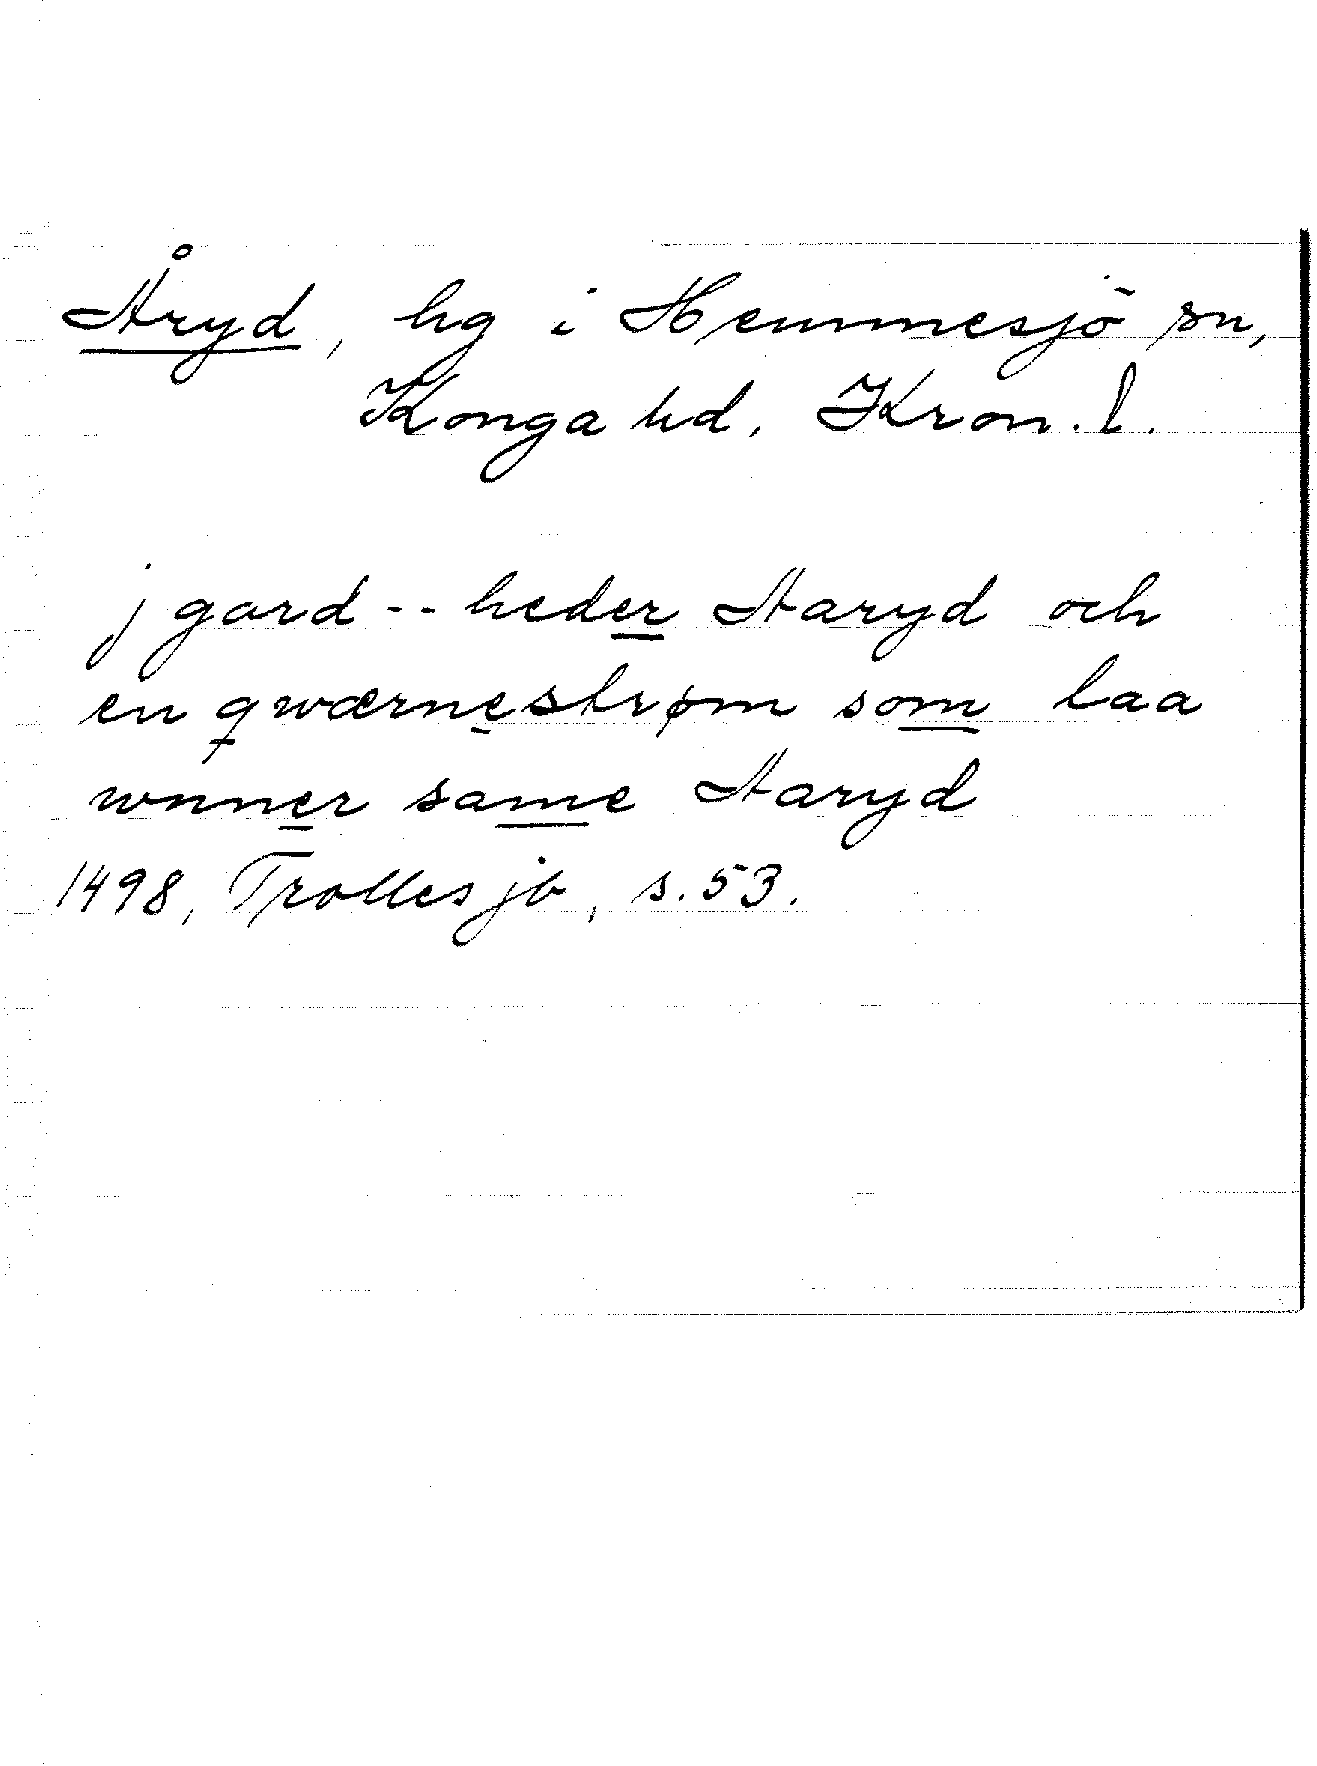 Åryd, hg i Hemmesjö sn,
Konga hd, Kron. l.
j gard -- heder Aaryd och
en qwærnestrøm som laa
wnner same Aaryd
1498, Trolles jb, s. 53.